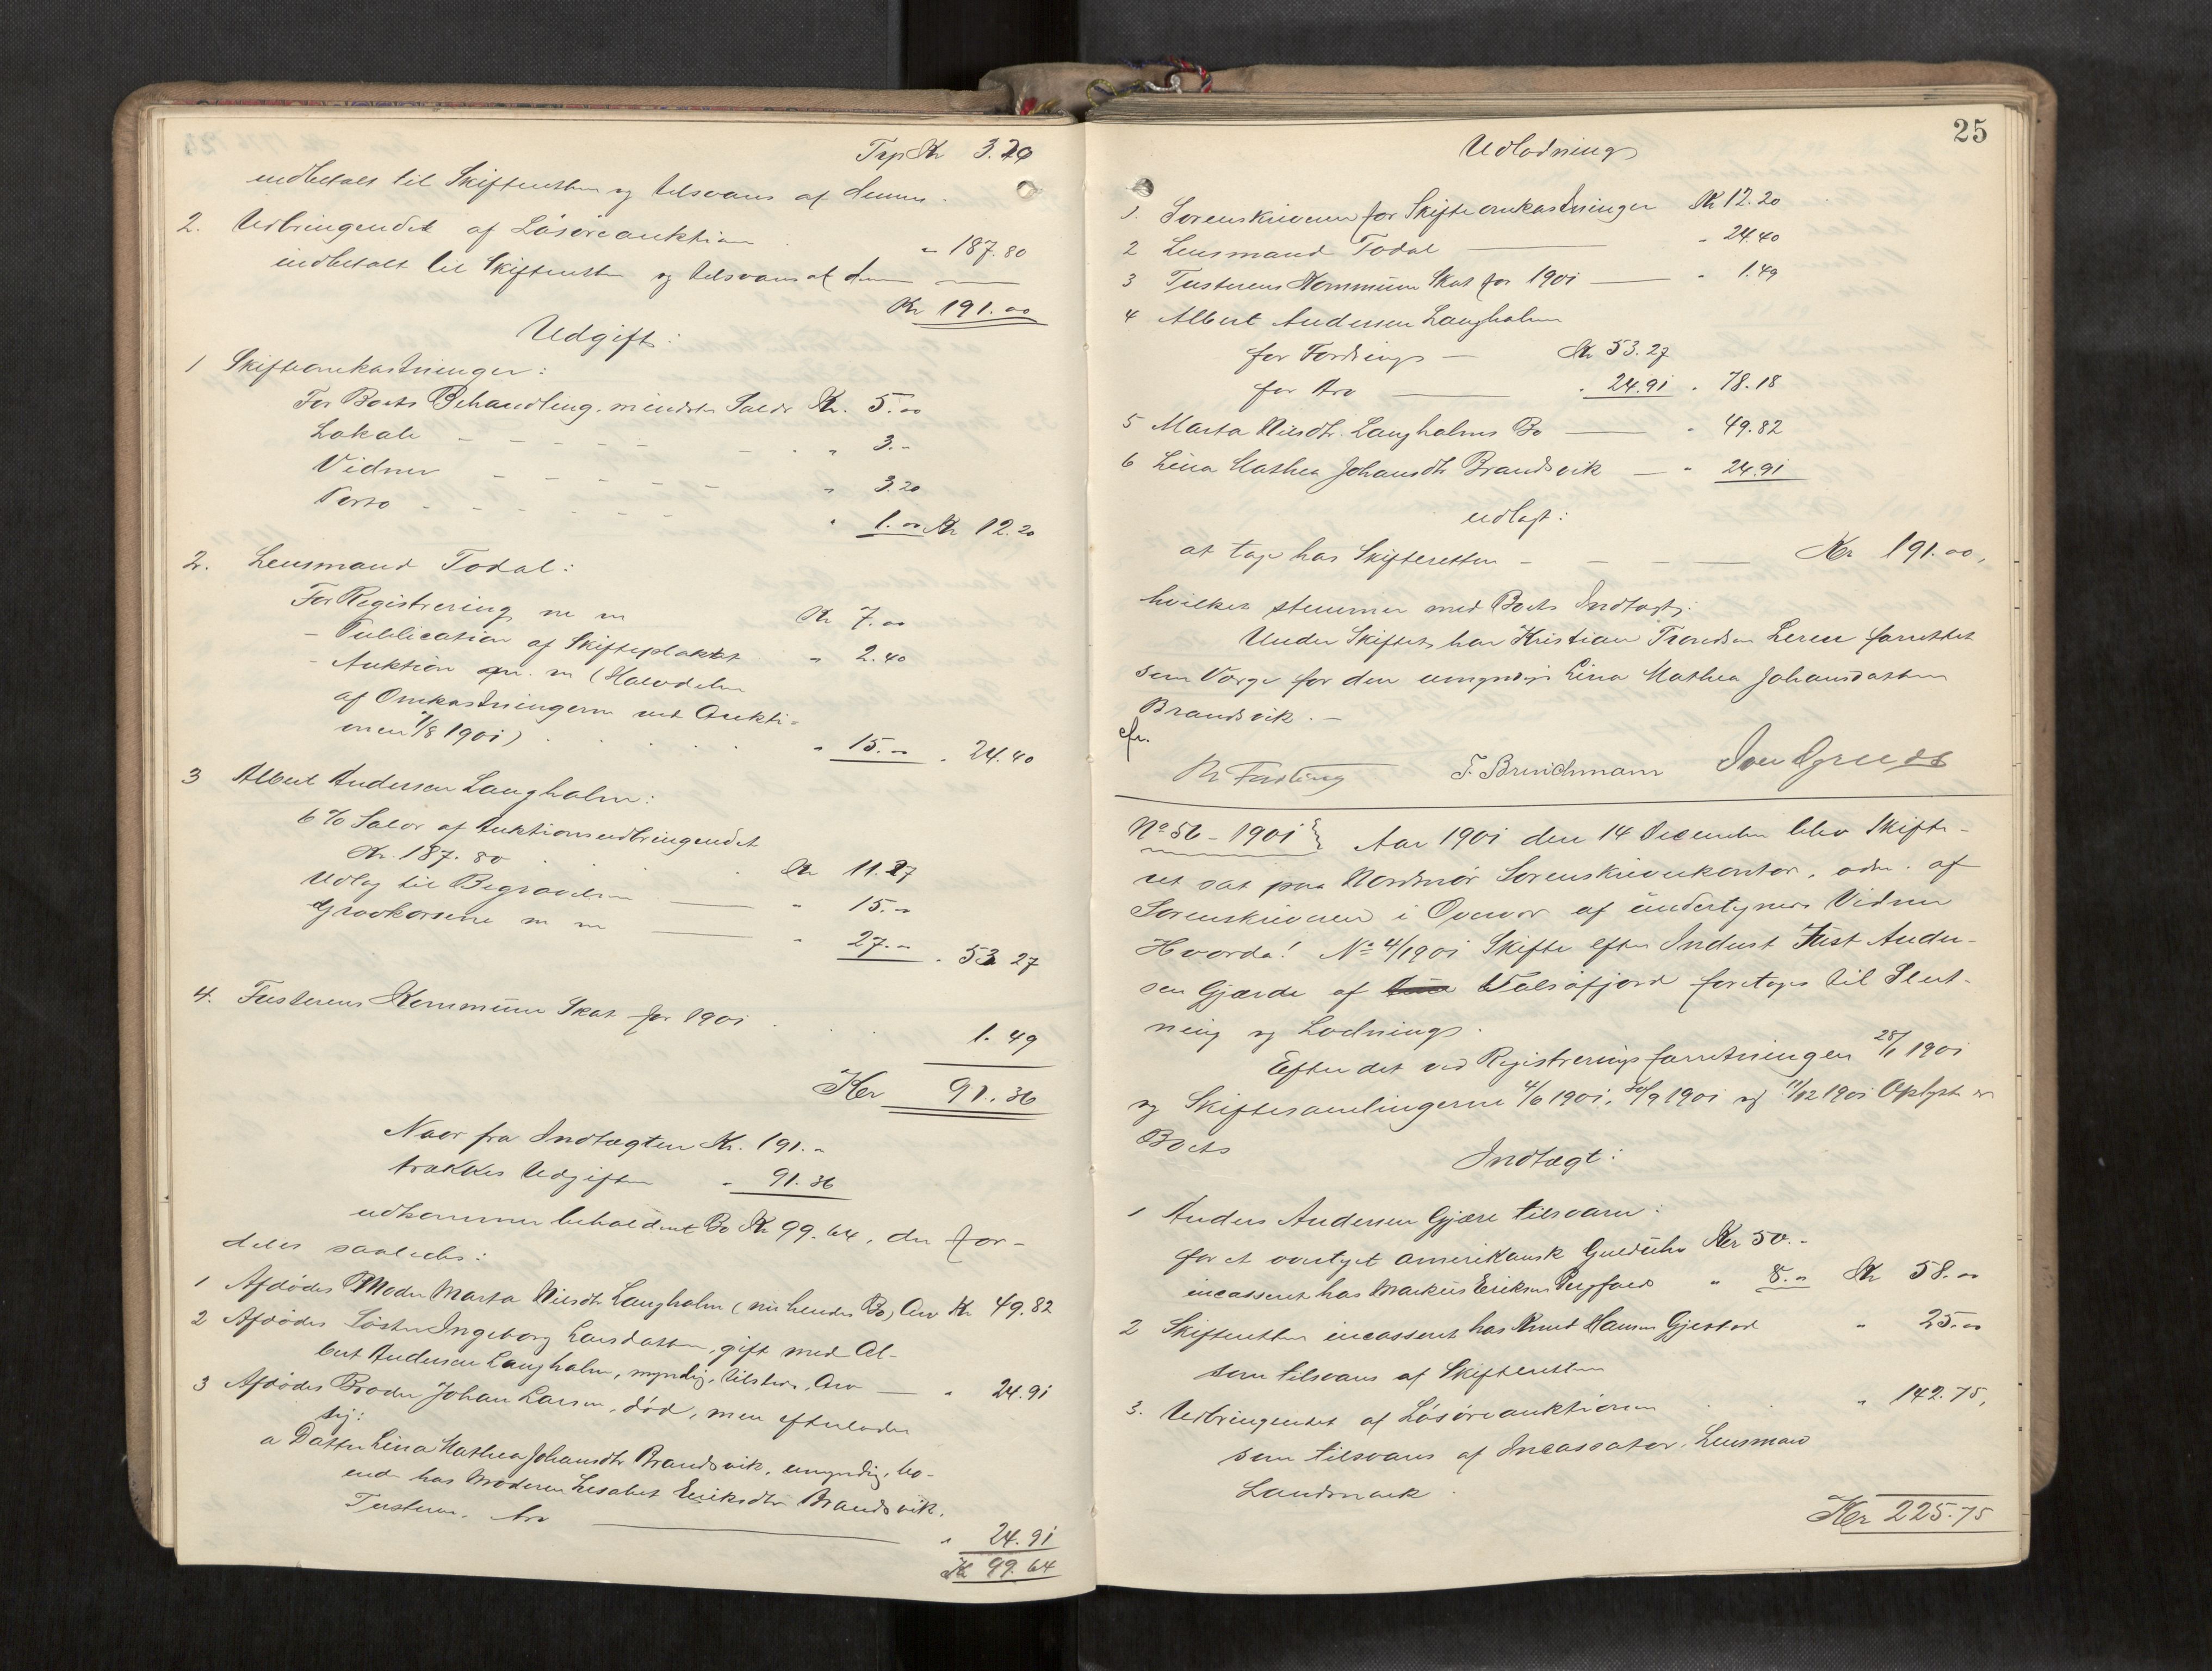 Trp Kr 3.20
indbetalt til Skifteretten og tilsvares af denne.
2. Udbringendet af Løsøreauktion " 187.80
indbetalt til Skifteretten og tilsvares af denne
Kr 191.00
Udgift:
1 Skifteomkostninger:
For Boets Behandling, mindste Salær Kr. 5.00
Lokale " 3.-
Vidner " 3.20
Porto " 1.00 Kr 12.20
2. Lensmand Todal:
For Registrering m m Kr 7.00
- Publication af Skifteplakat " 2.40
- Auktion m. m (Halvdelen
af Omkostningerne ved Aukti-
onen 7/8 1901) " 15.- " 24.40
3 Albert Andersen Langholm:
6 % Salær af Auktionsudbringendet
Kr. 187.80 Kr 11.27
Udlæg til Begravelsen " 15.-
Gravkorsene m m " 27.- " 53 27
4. Tusterens Kommune Skat for 1901
1.49
Kr 91.36
Naar fra Indtægten Kr. 191.-
trækkes Udgiften " 91.36
udkommer beholdent Bo Kr 99.64, der for-
deles saaledes:
1 Afdødes Moder Marta Nilsdtr Langholm (nu hendes Bo) Arv Kr 49.82
2 Afdødes Søster Ingeborg Larsdatter, gift med Al-
bert Andersen Langholm, myndig, tilstede, Arv " 24.91
3 Afdødes Broder Johan Larsen, død, men efterlader
sig:
a Datter Lina Mathea Johansdtr Brandsvik, umyndig, bo-
ende hos Moderen Lisabet Eriksdtr Brandsvik,
Tusteren, Arv " 24.91
Kr 99.64
25
Udlodning
1. Sorenskriveren for Skifteomkostninger Kr 12.20
2 Lensmand Todal " 24.40
3 Tusterens Kommune Skat for 1901 " 1.49
4 Albert Andersen Langholm
for Fordring - Kr 53.27
for Arv " 24.91 " 78.18
5 Marta Nilsdtr. Langholms Bo " 49.82
6 Lina Mathea Johansdtr Brandsvik " 24.91
udlagt:
at tage hos Skifteretten - Kr 191.00,
hvilket stemmer med Boets Indtægt.
Under Skiftet har Kristian Trondsen Leren forrettet
som Værge for den umyndige Lina Mathea Johansdatter
Brandsvik. -
cfr.
Fasting J. Brinchmann Iver Grude
No 56 - 1901 } Aar 1901 den 14 December blev Skifte-
ret sat paa Nordmør Sorenskriverkontor, adm. af
Sorenskriveren i Overvær af undertegnede Vidner
Hvorda! No 4/1901 Skifte efter Inderst Just Ander-
sen Gjærde af Valsøfjord foretages til Slut-
ning og Lodning.
Efter det ved Registreringsforretningen 28/1 1901
og Skiftesamlingerne 4/6 1901, 30/9 1901 og 11/12 1901 Oplyste er
Boets
Indtægt:
1 Anders Andersen Gjære tilsvarer:
for et overtaget amerikansk Guldúhr Kr 50.-
incasseret hos Markus Eriksen " 8.- Kr 58.00
2 Skifteretten incasseret hos Knud Hansen Gjerstad " 25.00
som tilsvares af Skifteretten
3. Udbringendet af Løsøreauktionen " 142.75,
som tilsvares af Incassator, Lensmand
Landmark.
Kr 225.75